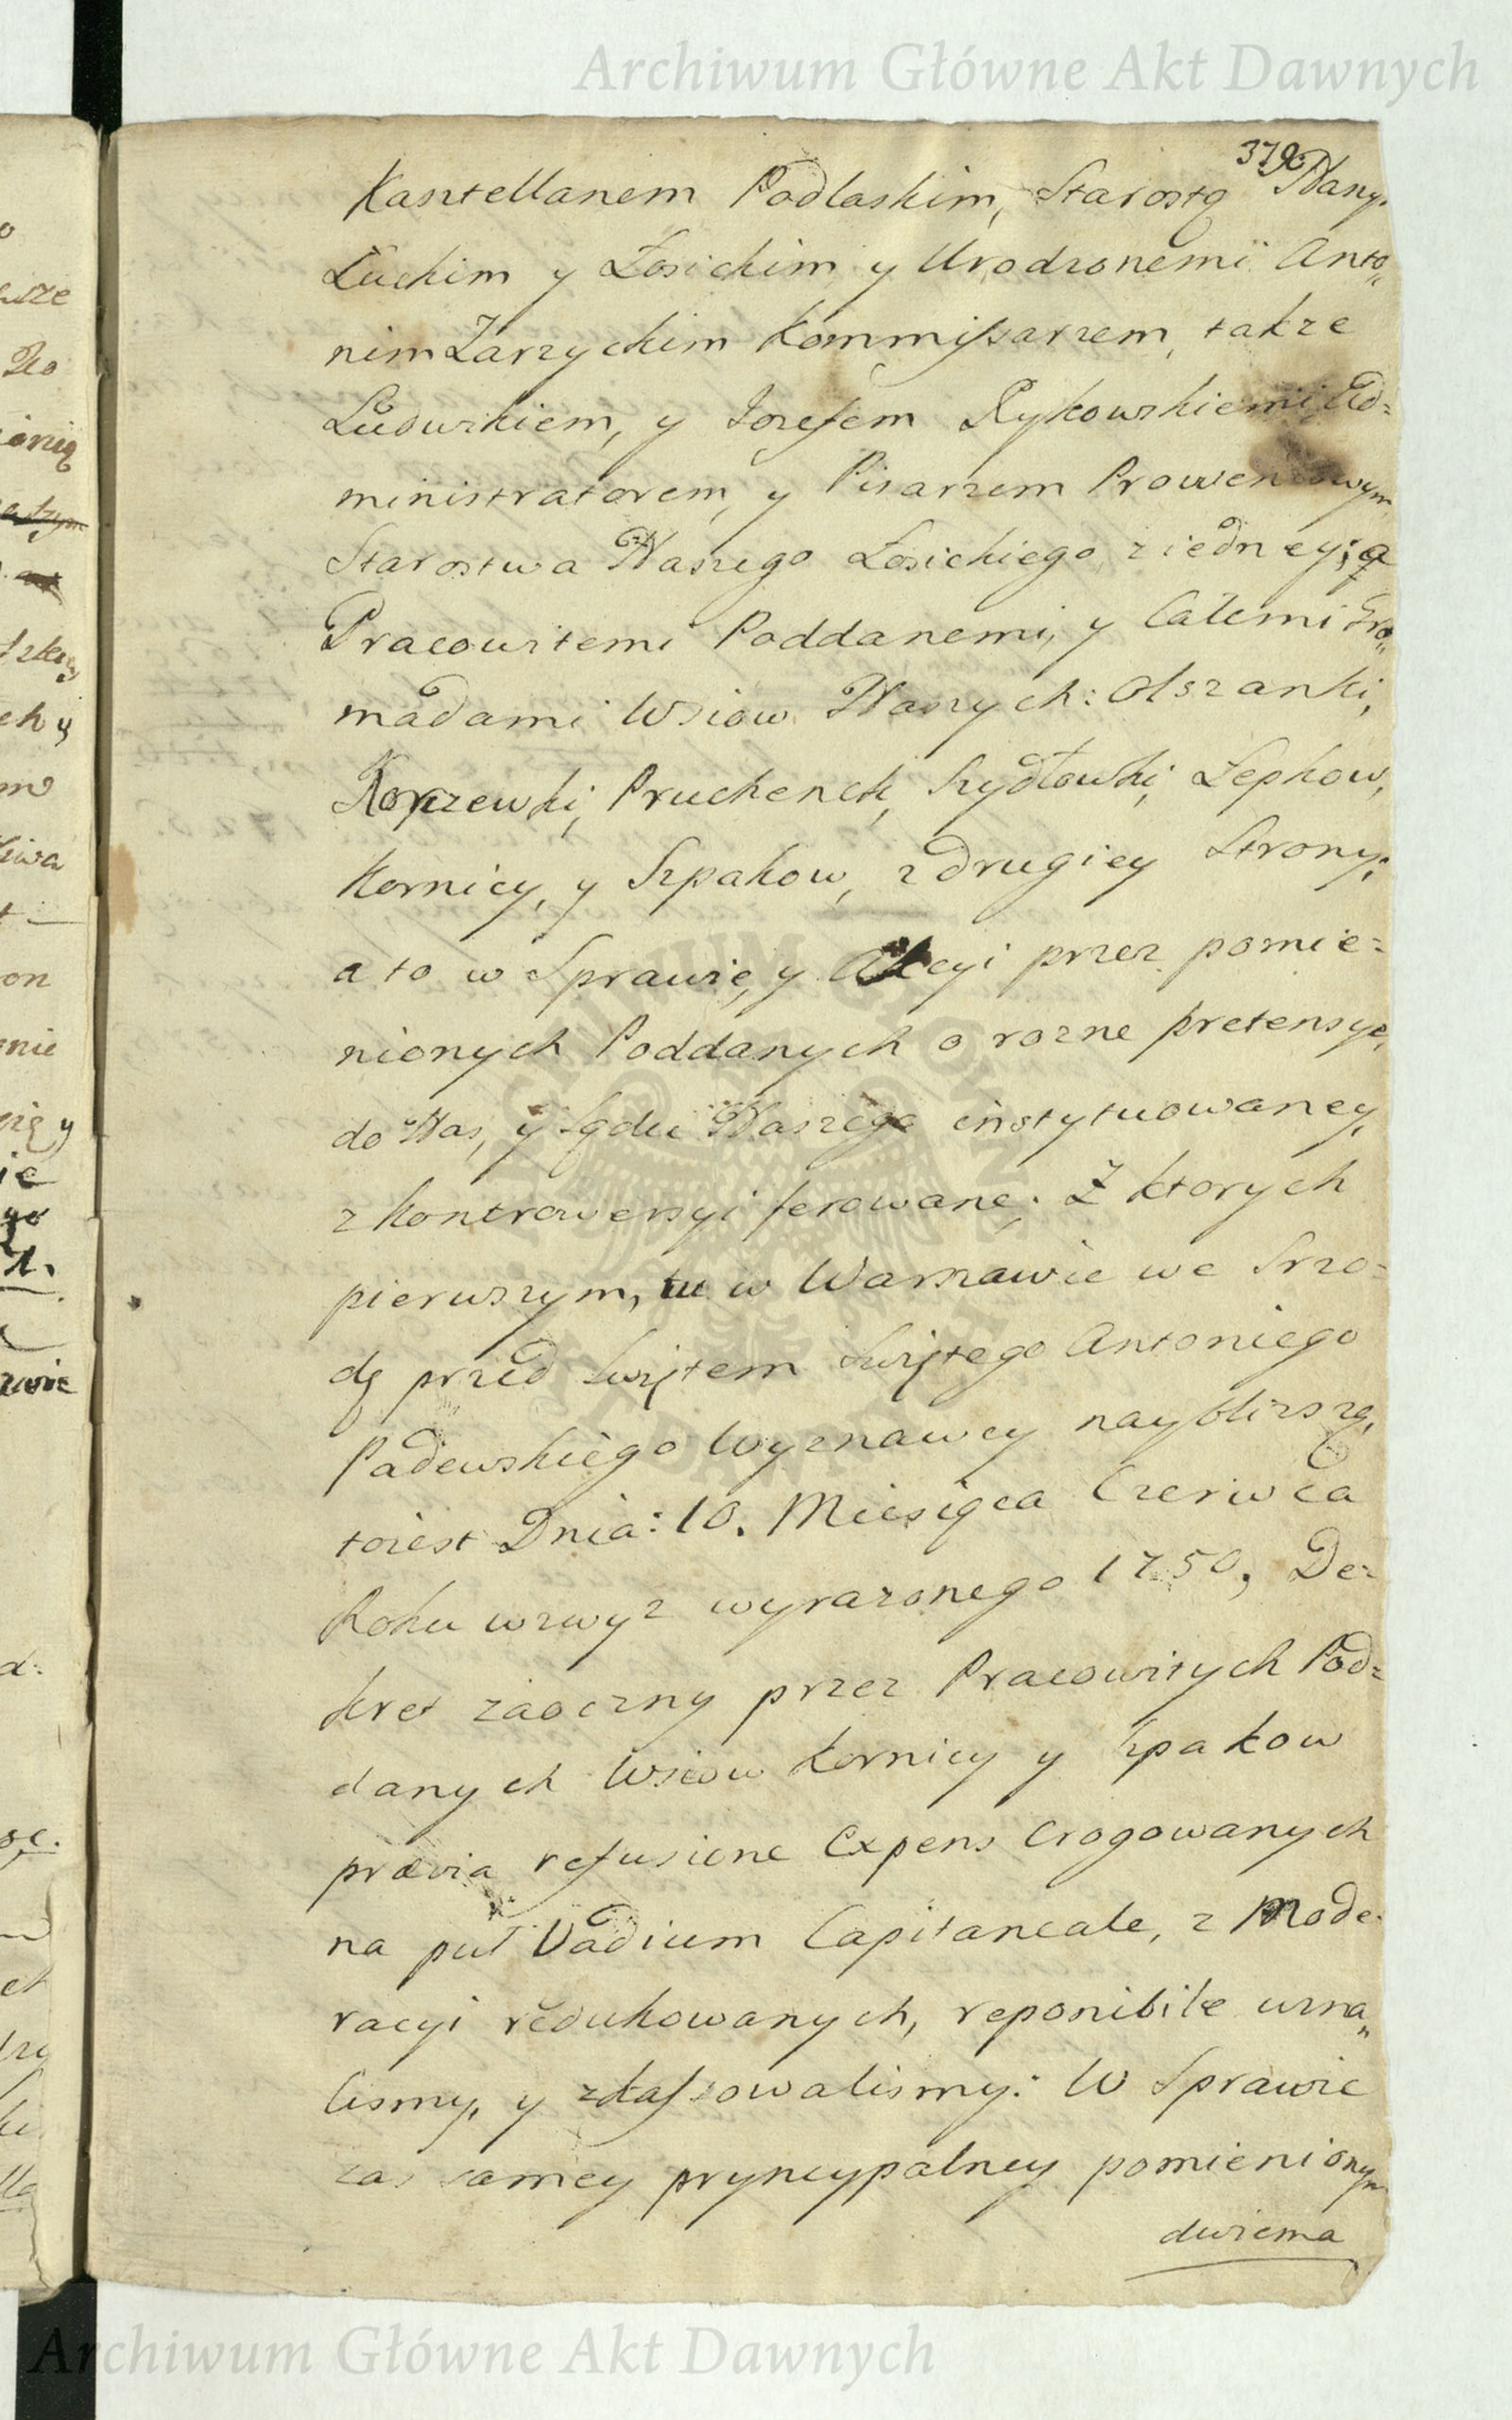 Archiwum Główne Akt Dawnych
379
Kasztellanem Podlaskim, Starostą Naszy.
Łuckim y Łosickim, y Urodzonemi Anto„
nim Zarzyckim Kommissarzem, takze
Ludwikiem, y Jozefem Rykowskiemi Ad=
ministratorem, y Pisarzem Prowentowym
Starostwa Naszego Łosickiego ziedney; a
Pracowitemi Poddanemi, y Całemi Gro„
madami Wsiow Naszych: Olszanki,
Korczewki, Pruchenck, Szydłowki, Łepkow,
Kornicy, y Szpakow, z drugiey Strony;
a to w Sprawie, y Akcyi przez pomie=
nionych Poddanych o rozne pretensye,
do Nas, y Sądu Naszego instytuowaney,
z kontrowersyi ferowane. Z ktorych
pierwszym, tu w Warszawie we Srzo=
dę przed Swiętem Swiętego Antoniego
Padewskiego Wyznawcy naybliższą,
toiest Dnia: 10. Miesiąca Czerwca
Roku wzwyz wyrazonego 1750, De=
kret zaoczny przez Pracowitych Pod=
danych Wsiow Kornicy y Szpakow
prævia refusione Expens Erogowanych
na puł Vadium Capitaneale, z Mode=
racyi redukowanych, reponibile uzna„
lismy, y zkassowalismy: W Sprawie
zas samey pryncypalney pomienionym
dwiema
Archiwum Główne Akt Dawnych